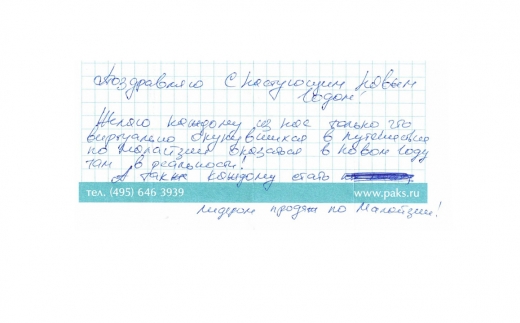 Поздравляю с наступающим Новым
Годом!
Желаю каждому из нас только что
виртуально окунувшихся в путешествие
по Малайзии оказаться в новом году
там в реальности!
А также каждому стать
тел. (495) 646 3939 www.paks.ru
лидером продаж по Малайзии!